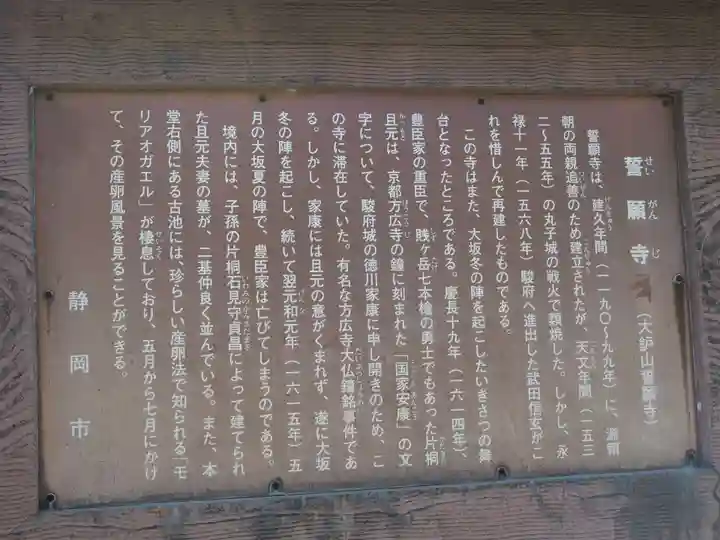 誓願寺（大鈩山誓願寺）
誓願寺は、建久年間（一一九〇～九九年）に、源頼
朝の両親追善のため建立されたが、天文年間（一五三
二～五五年）の丸子城の戦火で類焼した。しかし、永
禄十一年（一五六八年）駿府へ進出した武田信玄がこ
れを惜しんで再建したものである。
この寺はまた、大坂冬の陣を起こしたいきさつの舞
台となったところである。慶長十九年（一六一四年）、
豊臣家の重臣で、賤ヶ岳七本槍の勇士でもあった片桐
且元は、京都方広寺の鐘に刻まれた「国家安康」の文
字について、駿府城の徳川家康に申し開きのため、こ
の寺に滞在していた。有名な方広寺大仏鐘銘事件であ
る。しかし、家康には且元の意がくまれず、遂に大坂
冬の陣を起こし、続いて翌元和元年（一六一五年）五
月の大坂夏の陣で、豊臣家は亡びてしまうのである。
境内には、子孫の片桐石見守貞昌によって建てられ
た且元夫妻の墓が、二基仲良く並んでいる。また、本
堂右側にある古池には、珍らしい産卵法で知られる「モ
リアオガエル」が棲息しており、五月から七月にかけ
て、その産卵風景を見ることができる。
静岡市